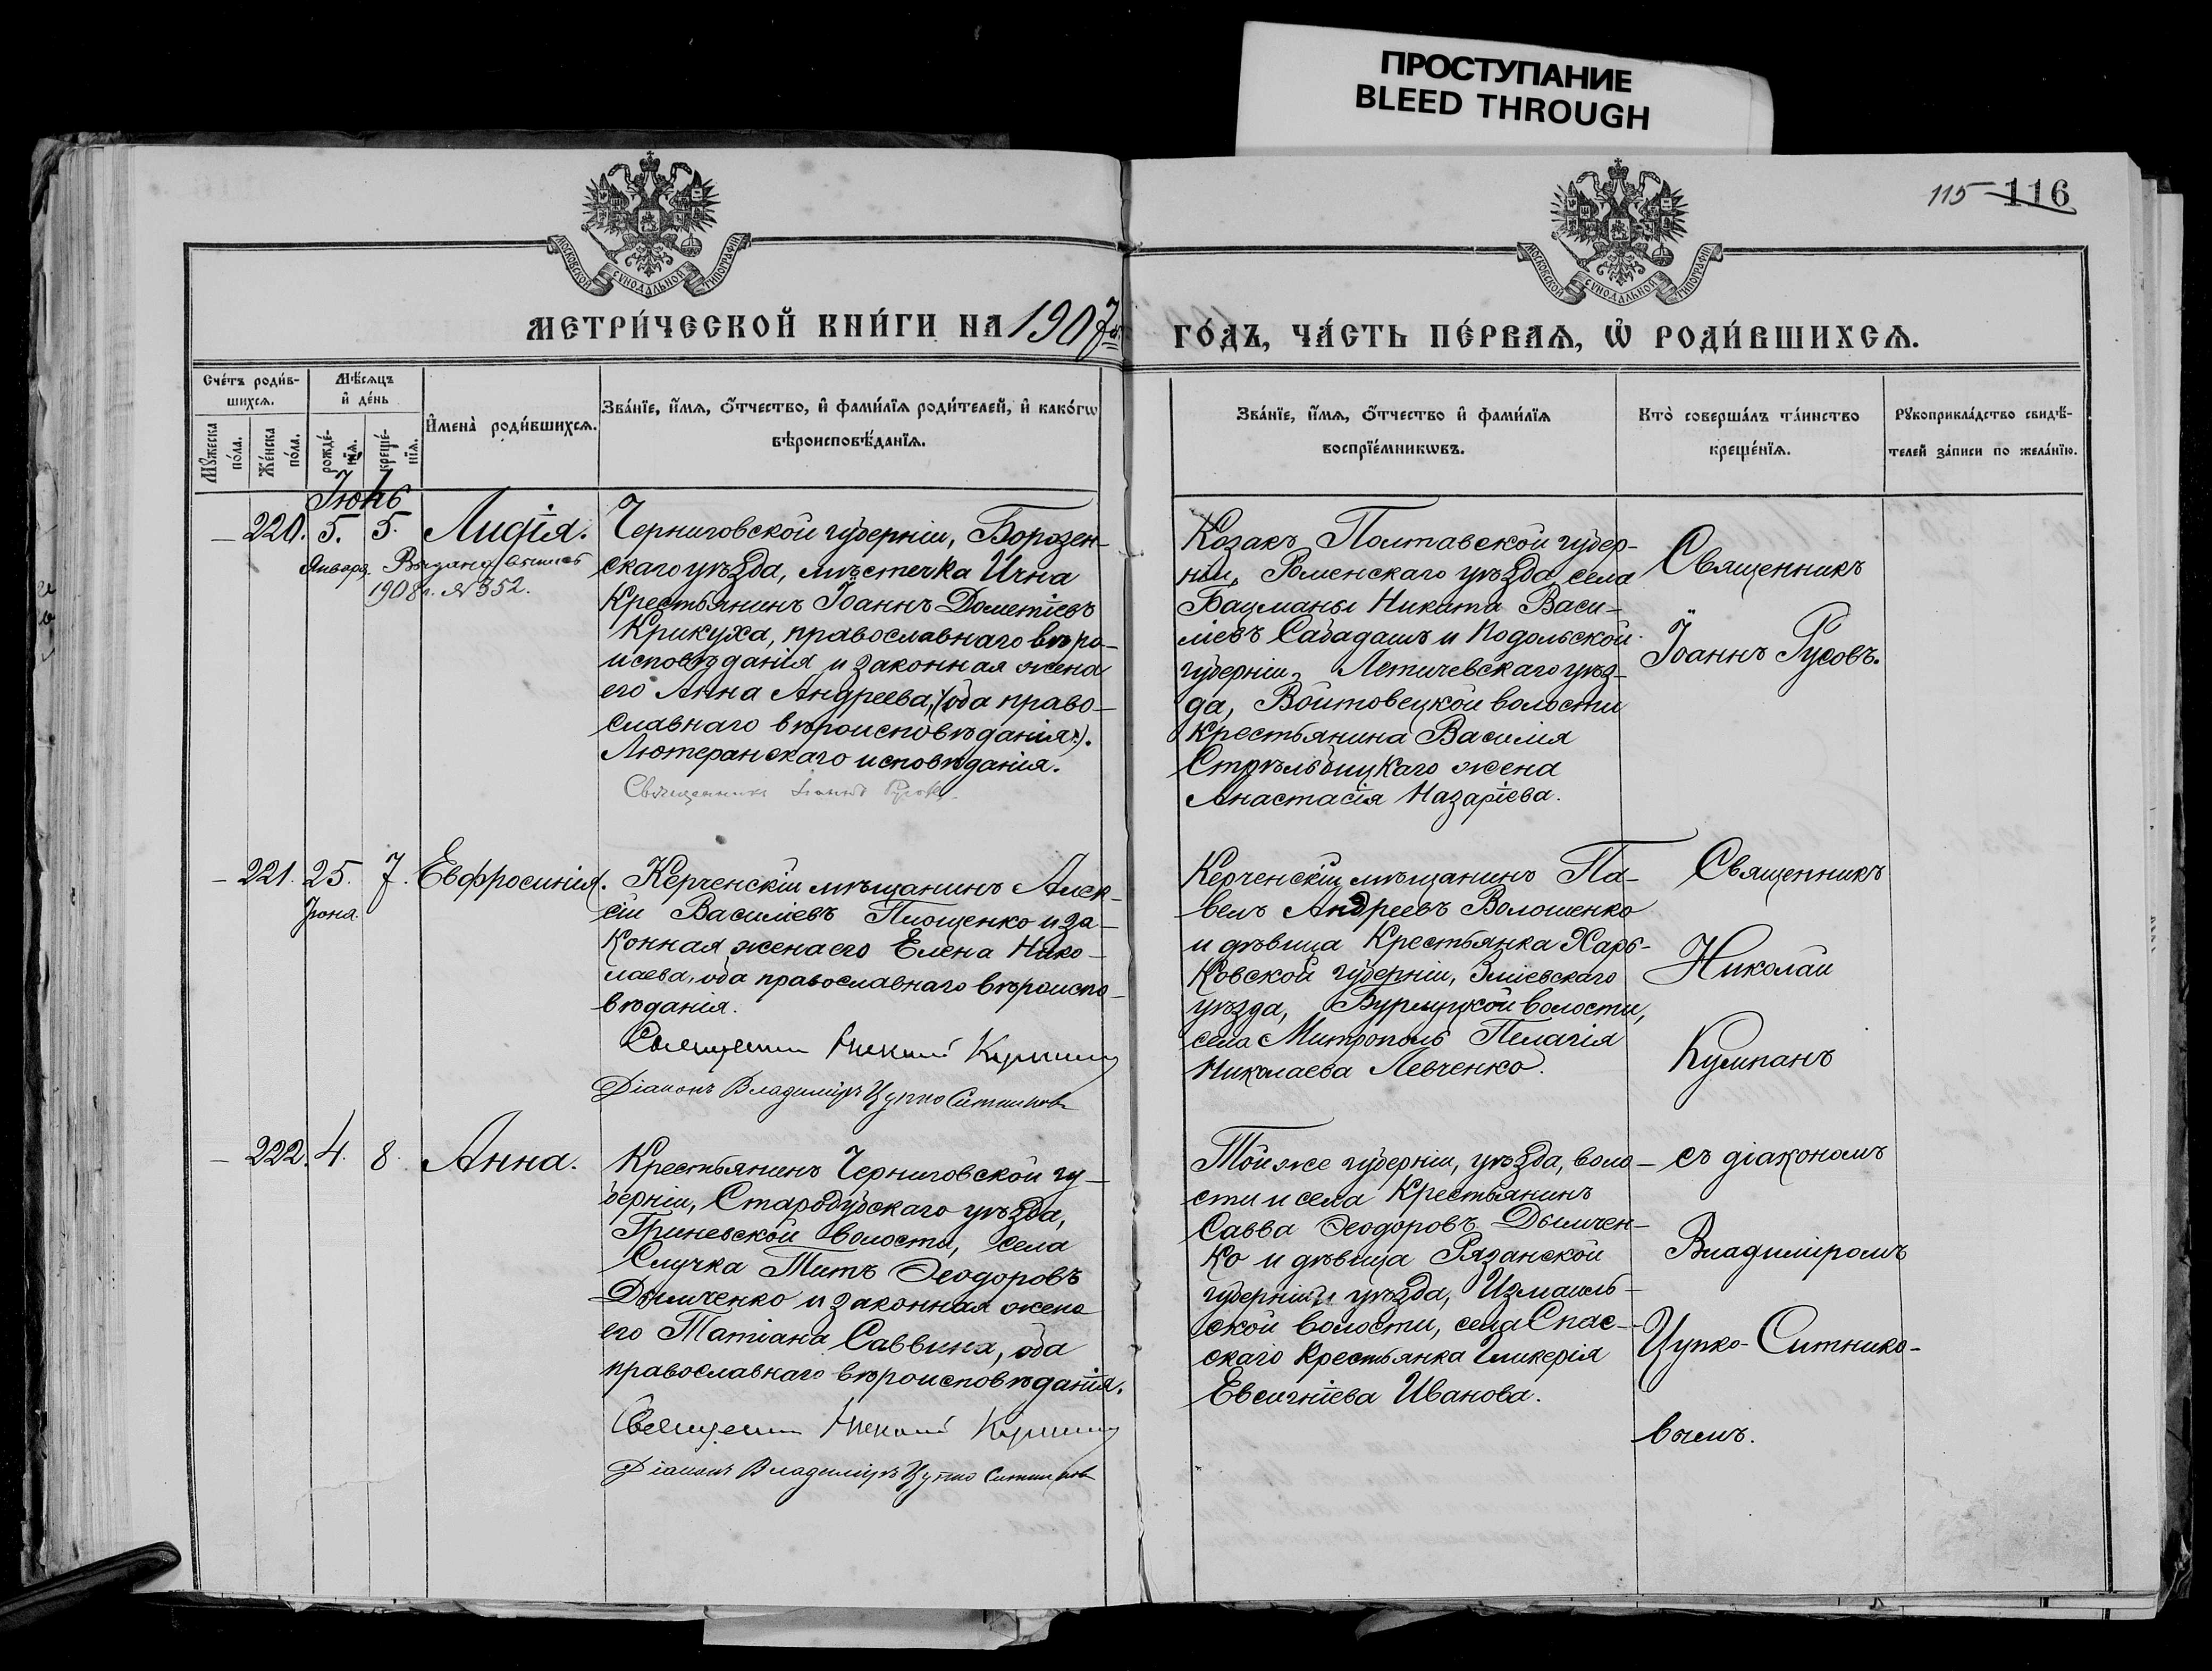 ПРОСТУПАНИЕ
BLEED THROUGH
115 116
МОСКОВСКОЙ СѴНОДАЛЬНОЙ ТИПОГРАФІИ
МОСКОВСКОЙ СѴНОДАЛЬНОЙ ТИПОГРАФІИ
МЕТРИ́ЧЕСКОЙ КНИ́ГИ НА 1907 г.
ГО́ДЪ, ЧА́СТЬ ПЕ́РВАѦ, Ѡ҆ РОДИ́ВШИХСѦ.
Сче́тъ роди́в-
шихсѧ.
Мꙋ́жеска по́ла.
Же́нска по́ла.
Мѣ́сѧцъ
и҆ де́нь
рожде́-
нїѧ.
креще́-
нїѧ.
И҆мена̀ роди́вшихсѧ.
Зва́нїе, и҆́мѧ, ѻ҆́тчество, и҆ фами́лїѧ роди́телей, и҆ како́гѡ
вѣроисповѣ́данїѧ.
Зва́нїе, и҆́мѧ, ѻ҆́тчество и҆ фами́лїѧ
воспрїе́мникѡвъ.
Кто̀ соверша́лъ та́инство
креще́нїѧ.
Рꙋкоприкла́дство свидѣ́-
телей за́писи по жела́нїю.
Іюнь
– 220. 5. 5. Лидія.
Января. Выдана выпись
1908 г. № 352.
Черниговской губерніи, Борозен-
скаго уѣзда, мѣстечка Ична
Крестьянинъ Іоаннъ Дометіевъ
Крикуха, православнаго вѣро-
исповѣданія и законная жена
его Анна Андреева, (оба право-
славнаго вѣроисповѣданія).
Лютеранскаго исповѣданія.
Священникъ Іоаннъ Русовъ
Козакъ Полтавской губер-
ніи, Роменскаго уѣзда села
Бацманы Никита Васи-
ліевъ Сабадашъ и Подольской
губерніи, Летичевскаго уѣз-
да, Войтовецкой волости
Крестьянина Василія
Стрѣльбицкаго жена
Анастасія Назаріева.
Священникъ
Іоаннъ Русовъ.
– 221. 25. 7. Евфросинія.
Іюня.
Керченскій мѣщанинъ Алек-
сій Василіевъ Площенко и за-
конная жена его Елена Нико-
лаева, оба православнаго вѣроиспо-
вѣданія.
Священникъ Николай Кумпанъ
Діаконъ Владиміръ Цупко Ситниковъ
Керченскій мѣщанинъ Па-
велъ Андреевъ Волошенко
и дѣвица Крестьянка Харь-
ковской губерніи, Зміевскаго
уѣзда, Бурлуцкой волости,
села Митрополь Пелагія
Николаева Левченко.
Священникъ
Николай
Кумпанъ
– 222. 4. 8. Анна.
Крестьянинъ Черниговской гу-
берніи, Стародубскаго уѣзда,
Гриневской волости, села
Случка Титъ Ѳеодоровъ
Дымченко и законная жена
его Татіана Саввина, оба
православнаго вѣроисповѣданія.
Священникъ Николай Кумпанъ
Діаконъ Владиміръ Цупко Ситниковъ
Той же губерніи, уѣзда, воло-
сти и села Крестьянинъ
Савва Ѳеодоровъ Дымчен-
ко и дѣвица Рязанской
губерніи и уѣзда, Измаиль-
ской волости, села Спас-
скаго Крестьянка Гликерія
Евсигніева Иванова.
съ діакономъ
Владиміромъ
Цупко-Ситнико-
вымъ.